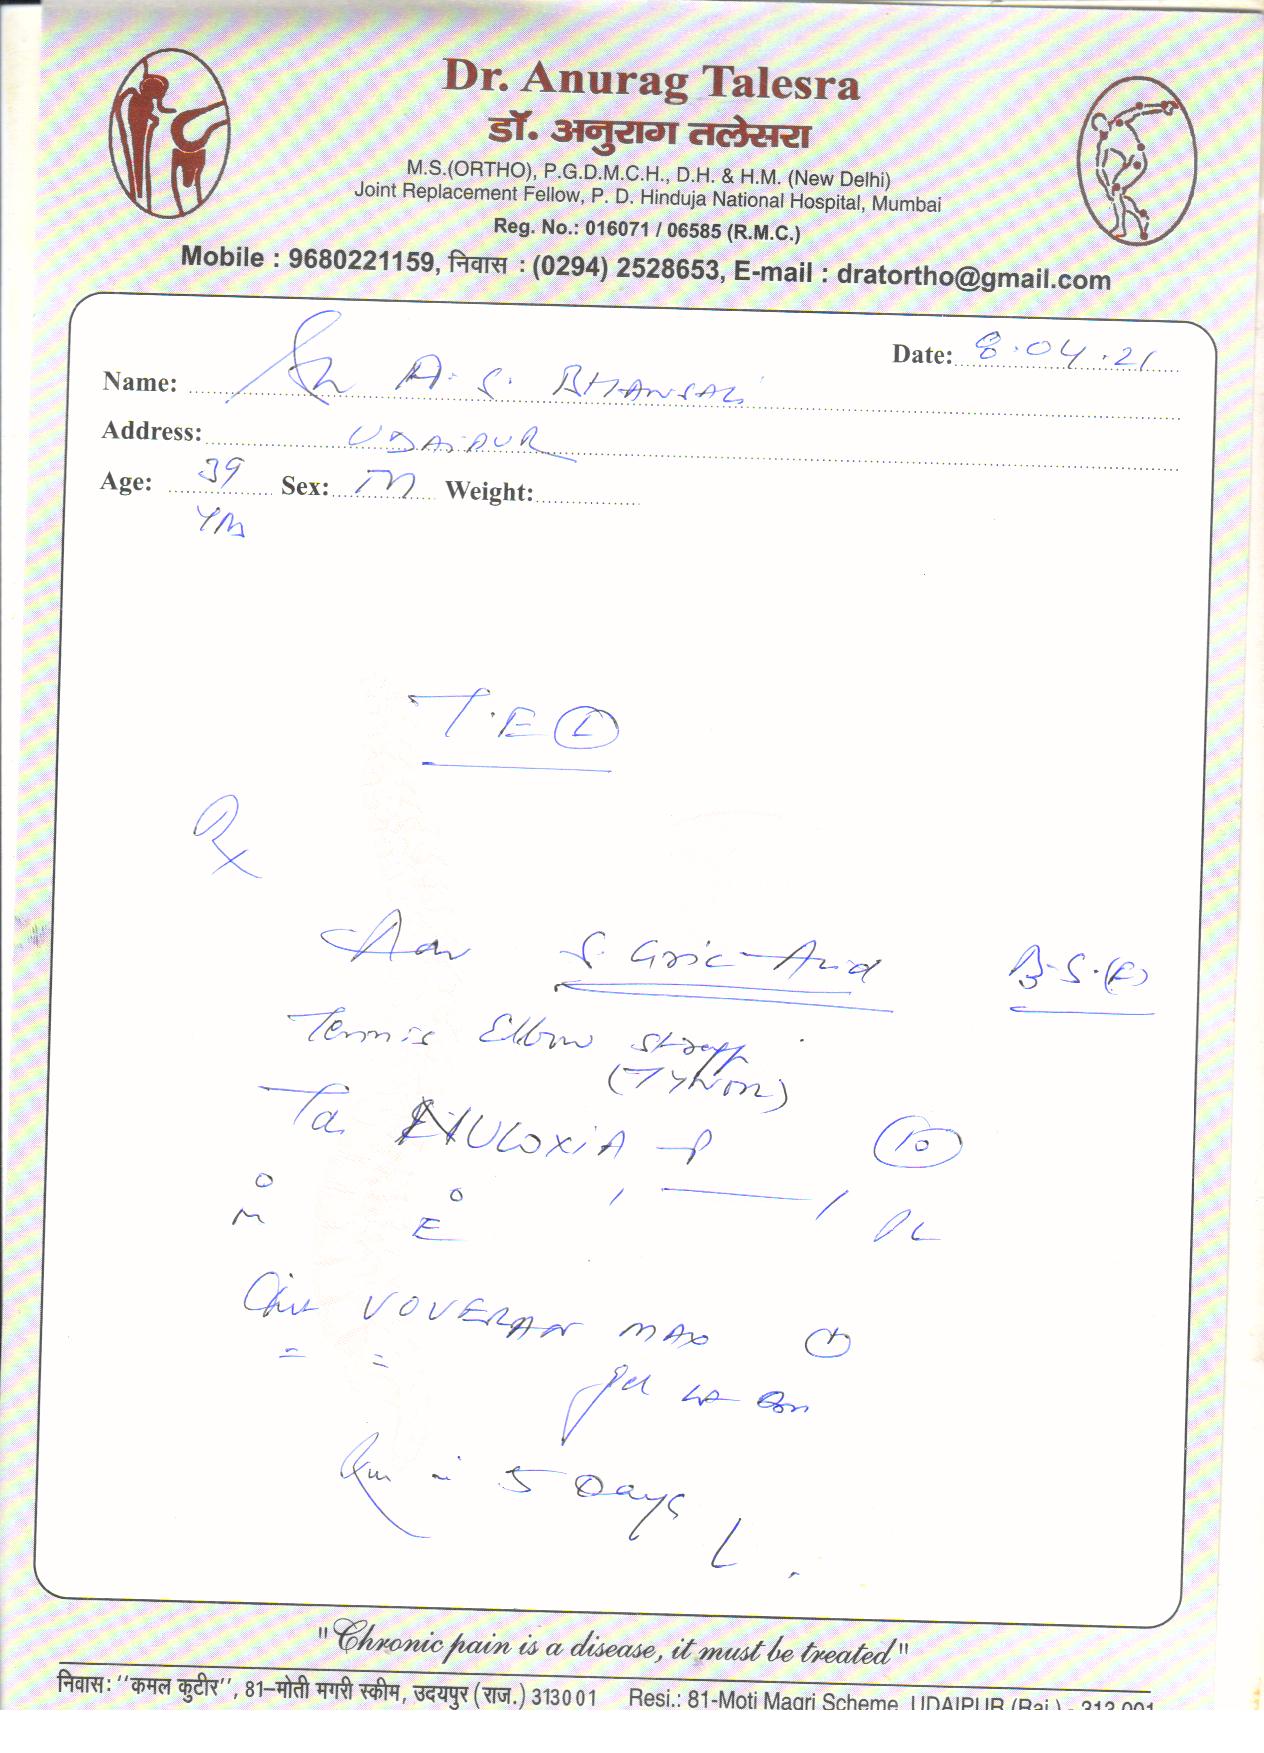 Dr. Anurag Talesra
डॉ. अनुराग तलेसरा
M.S.(ORTHO), P.G.D.M.C.H., D.H. & H.M. (New Delhi)
Joint Replacement Fellow, P. D. Hinduja National Hospital, Mumbai
Reg. No.: 016071 / 06585 (R.M.C.)
Mobile : 9680221159, निवास : (0294) 2528653, E-mail : dratortho@gmail.com
Date: 8.04.21
Name: Sh A. S. BHANSALI
Address: UDAIPUR
Age: 39 Sex: M Weight:
Yrs
T.E (L)
Rx
S. Uric Acid B.S.(F)
Tennis Elbow strap
(TYNOR)
Ta. NULOXIA P (10)
M E
VOVERAN MAX
5 Days
"Chronic pain is a disease, it must be treated"
निवास: ''कमल कुटीर'', 81–मोती मगरी स्कीम, उदयपुर (राज.) 313001 Resi.: 81-Moti Magri Scheme, UDAIPUR (Raj.) - 313 001